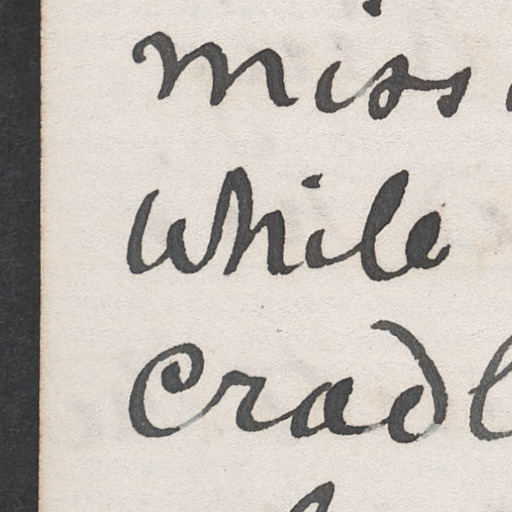 miss
while
cradl